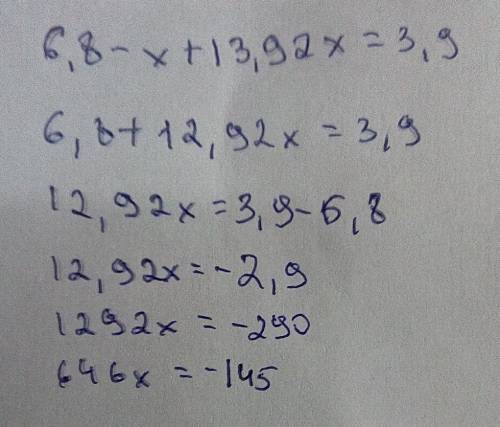 6,8-x+13,92x=3,9
6,8+12,92x=3,9
12,92x=3,9-6,8
12,92x=-2,9
1292x=-290
646x=-145